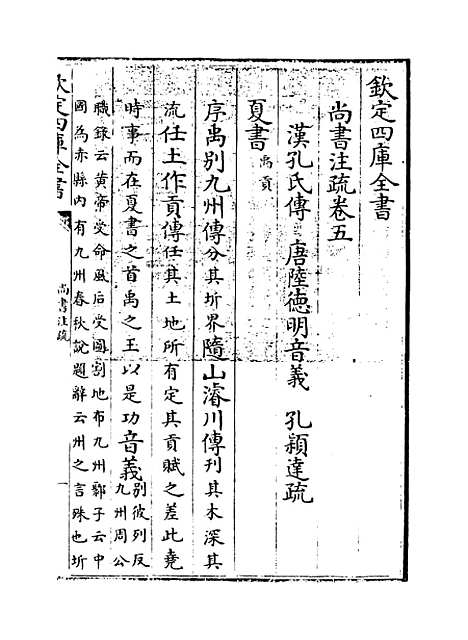 欽定四庫全書
尚書注疏卷五
漢孔氏傳 唐陸德明音義 孔穎達疏
夏書禹貢
序禹別九州傳分其圻界隨山濬川傳刊其木深其
流任土作貢傳任其土地所有定其貢賦之差此堯
時事而在夏書之首禹之王以是功音義別彼列反
九州周公
職錄云黄帝受命風后受圖割地布九州鄒子云中
國為赤縣内有九州春秋說題辭云州之言殊也圻
欽定四庫全書
尚書注疏
一